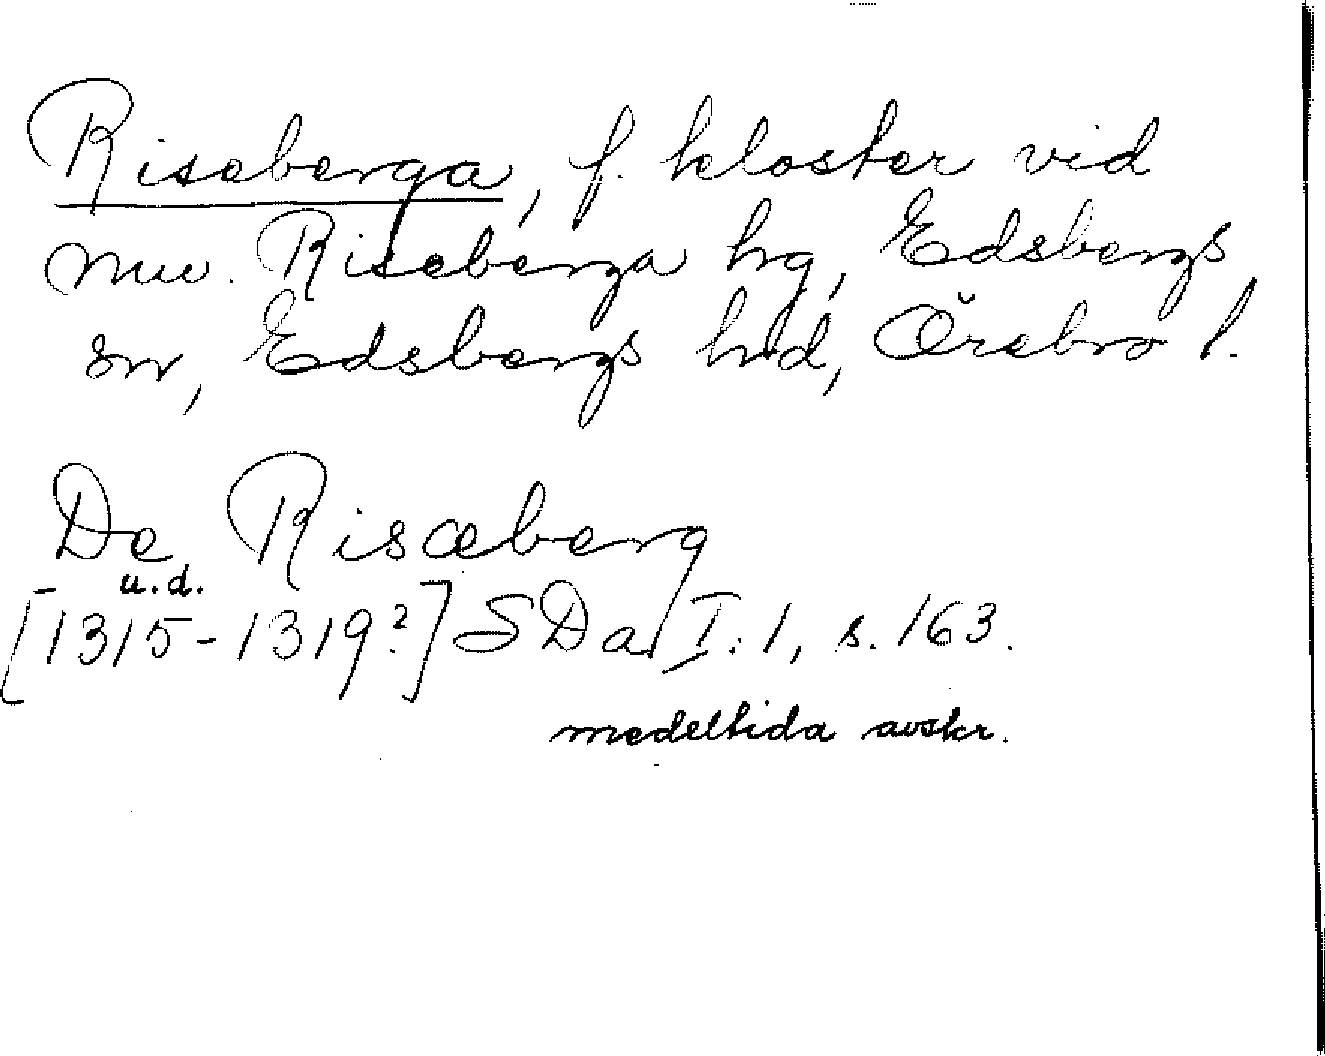 Riseberga, f. kloster vid
nuv. Riseberga hg, Edsbergs
sn, Edsbergs hd, Örebro l.
De Risæberg
u.d.
[1315-1319?] SDa I:1, s. 163.
medeltida avskr.